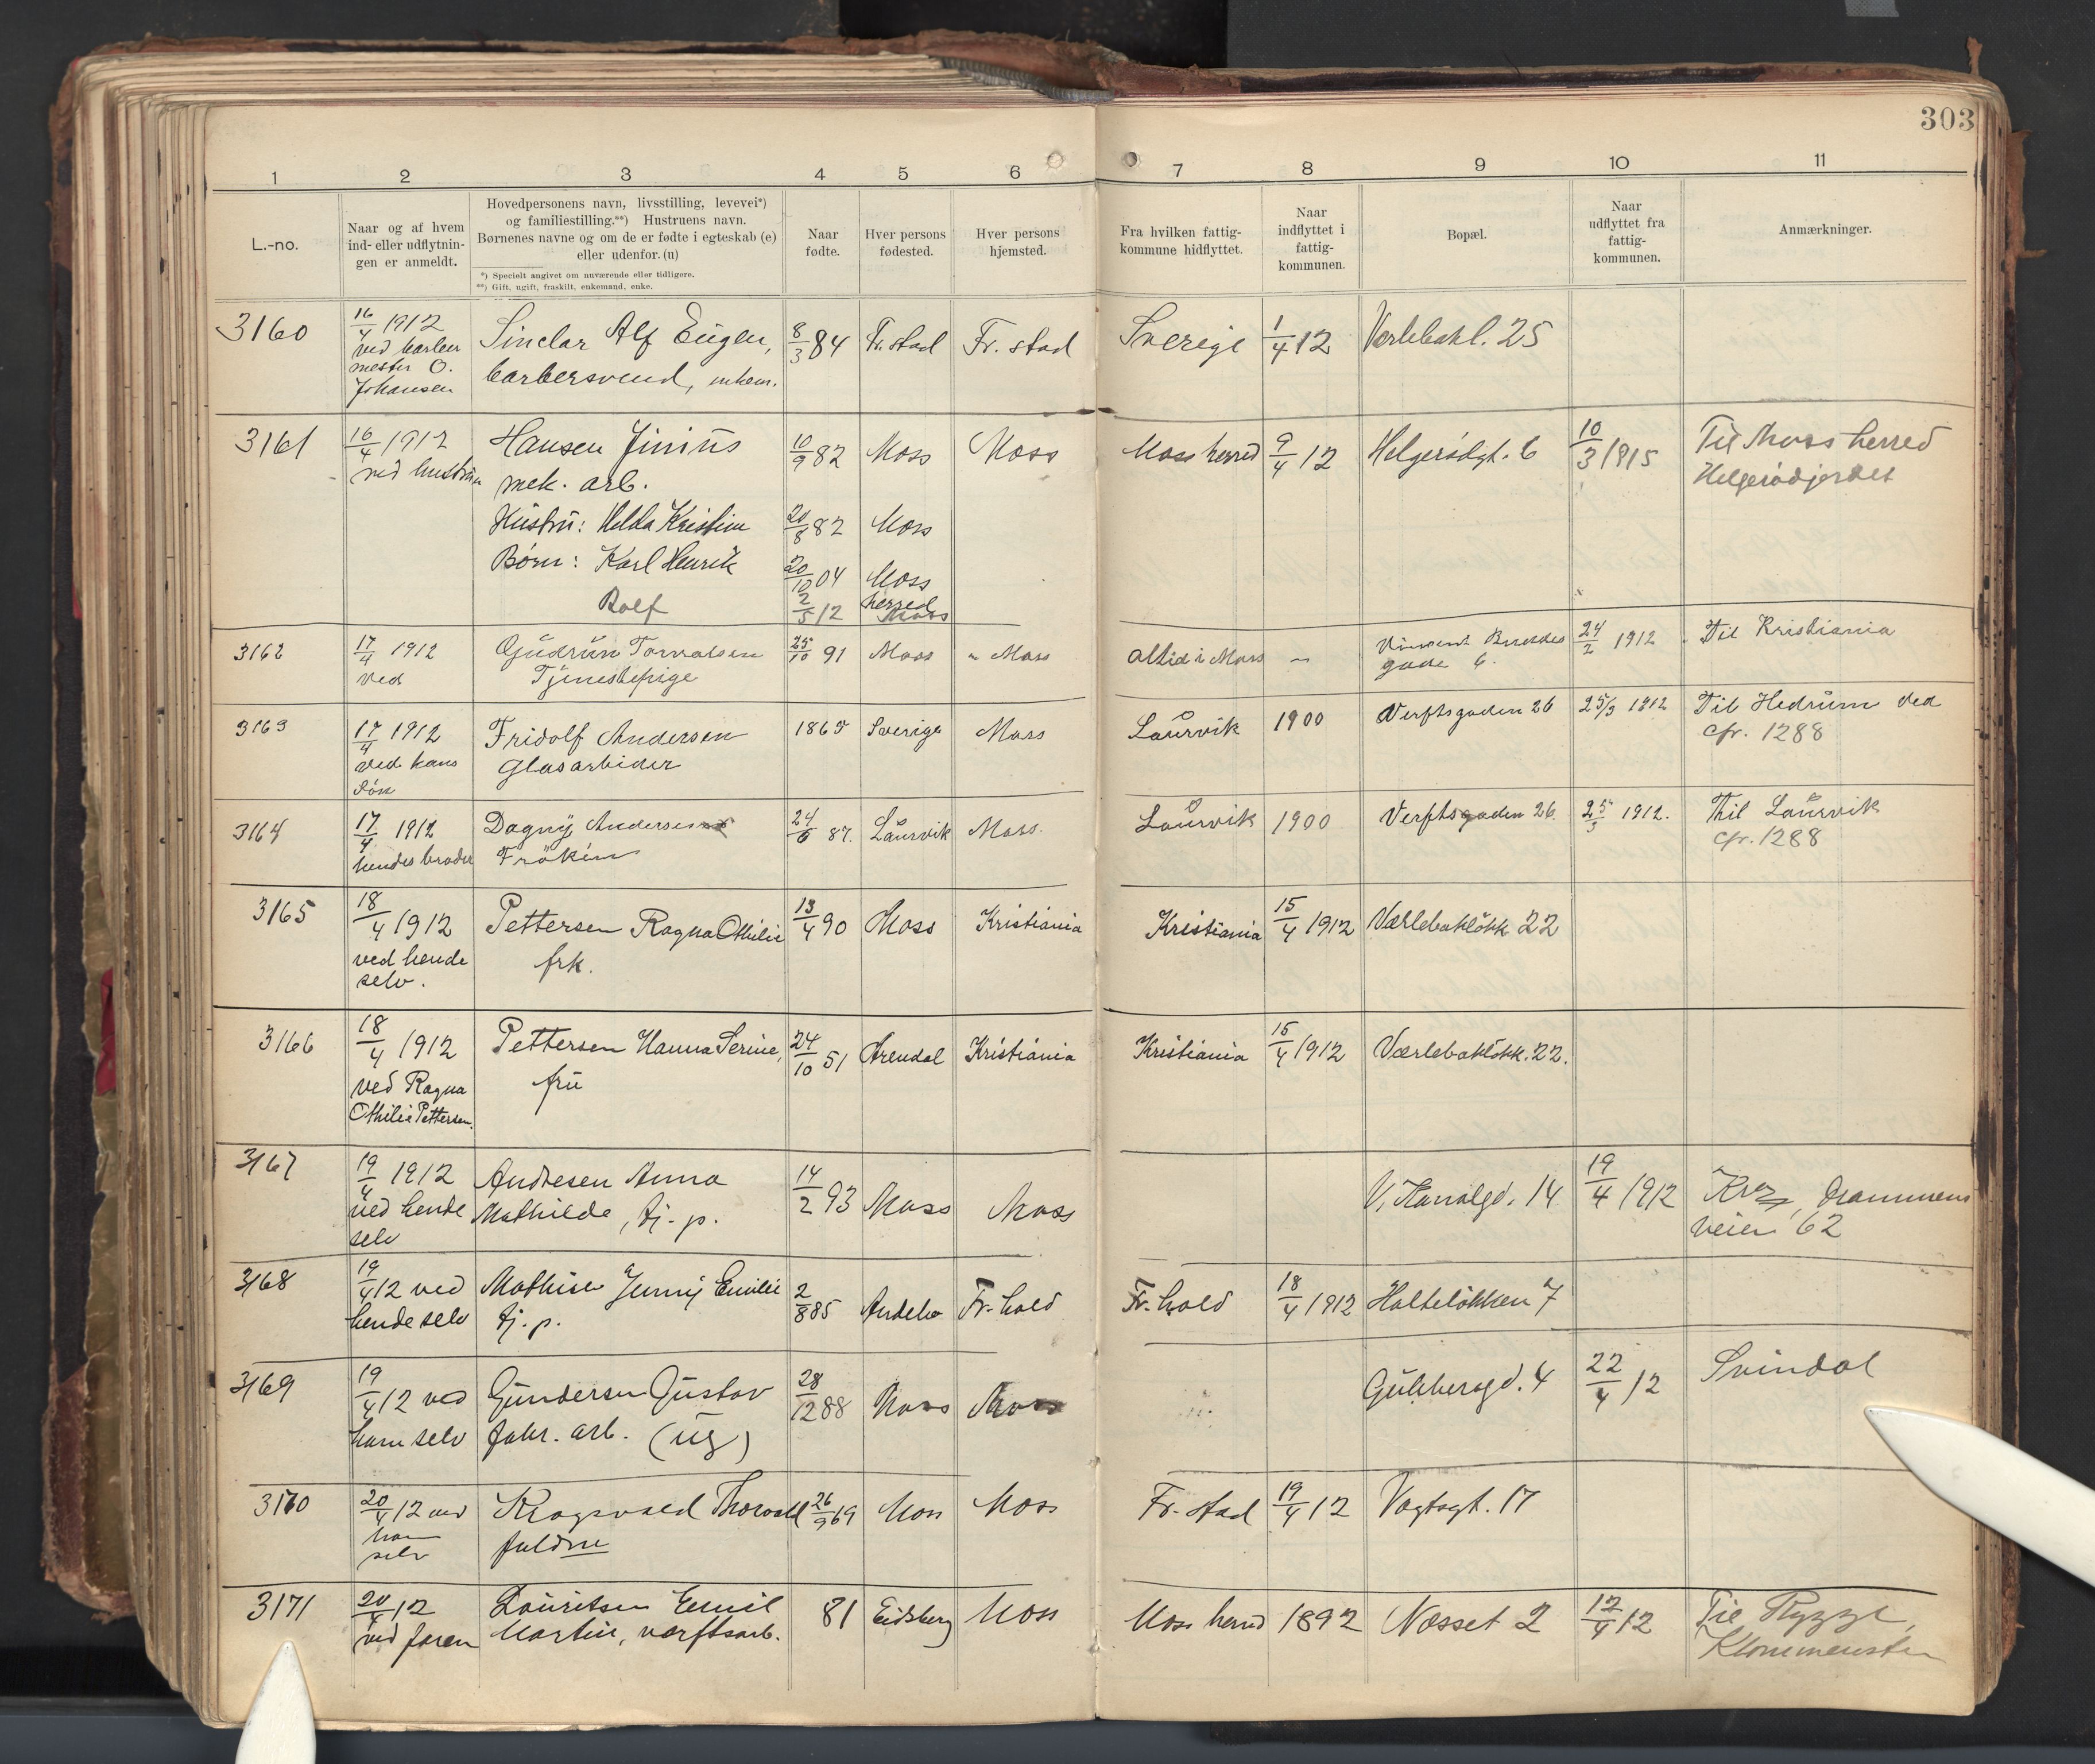 303
1 2 3 4 5 6 7 8 9 10 11
L.-no.
Naar og af hvem
ind- eller udflytnin-
gen er anmeldt.
Hovedpersonens navn, livsstilling, levevei*)
og familiestilling.**) Hustruens navn.
Børnenes navne og om de er fødte i egteskab (e)
eller udenfor. (u)
*) Specielt angivet om nuværende eller tidligere.
**) Gift, ugift, fraskilt, enkemand, enke.
Naar
fødte.
Hver persons
fødested.
Hver persons
hjemsted.
Fra hvilken fattig-
kommune hidflyttet.
Naar
indflyttet i
fattig-
kommunen.
Bopæl.
Naar
udflyttet fra
fattig-
kommunen.
Anmærkninger.
3160
16/4 1912
ved barber
mester O.
Johansen
Sinclar Alf Eugen,
barbersvend,
8/3 84
Fr.stad
Fr. stad
Sverige
1/4 12
Værlebakl. 25
3161
16/4 1912
ved hustru
Hansen Jinius
mek. arb.
Hustru: Hilda Kristine
Børn: Karl Henrik
Rolf
10/9 82
20/8 82
20/12 04
2/5 12
Moss
Moss
Moss
herred
Moss
Moss
Moss herred
9/4 12
Helgerødgt. 6
10/3 1915
Til Moss herred
Helgerødjordet
3162
17/4 1912
ved
Gudrun Torvalsen
Tjenestepige
25/10 91
Moss
Moss
altid i Moss
gade 6.
24/2 1912
Til Kristiania
3163
17/4 1912
ved hans
søn
Fridolf Andersen
Glasarbider
1865
Sverige
Moss
Laurvik
1900
Verftsgaden 26
25/3 1912
Til Hedrum ved
cfr. 1288
3164
17/4 1912
hendes broder
Dagny Andersen
Frøken
24/6 87.
Laurvik
Moss.
Laurvik
1900
Verftsgaden 26.
25/3 1912.
Thil Laurvik
cfr. 1288
3165
18/4 1912
ved hende
selv.
Pettersen Ragna Othilie
frk.
13/4 90
Moss
Kristiania
Kristiania
15/4 1912
Værlebakløkk 22
3166
18/4 1912
ved Ragna
Othilie Pettersen.
Pettersen Hanna Serine,
fru
24/10 51
Arendal
Kristiania
Kristiania
15/4 1912
Værlebakløkk. 22.
3167
19/4 1912
ved hende
selv
Andresen Anna
Mathilde, tj.-p.
14/2 93
Moss
Moss
V. Kanalgd. 14
19/4 1912
Kra, Drammens
veien 62
3168
19/4 12 ved
hende selv
Mathisen Jenny Emilie
tj.-p.
2/8 85
Andebo
Fr.-hald
Fr. hald
18/4 1912
Holteløkken 7
3169
19/4 12 ved
ham selv
Gundersen Gustav
fabr. arb. (ug)
28/12 88
Moss
Moss
Gulhbergd. 4
22/4 12
Svindal
3170
20/4 12 ved
ham
selv
Krogsvold Thorvald
26/9 69
Moss
Moss
Fr.-stad
19/4 12
Vogtsgt. 17
3171
20/4 12
ved faren
Lauritsen Emil
Martin, værftsarb.
81
Eidsberg
Moss
Moss herred
1892
Næsset 2
12/4 12
Til Rygge,
Klommensten